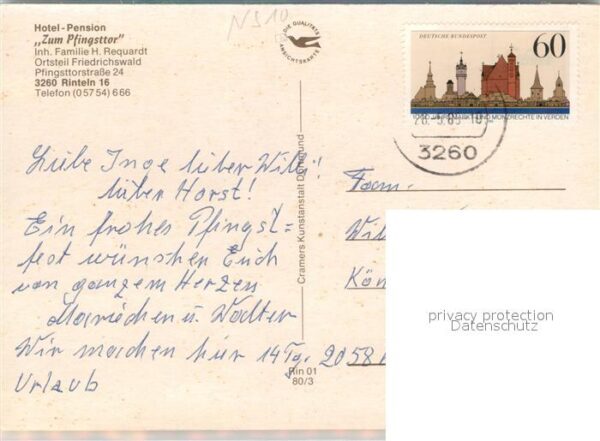 Hotel-Pension
„Zum Pfingsttor"
Inh. Familie H. Requardt
Ortsteil Friedrichswald
Pfingsttorstraße 24
3260 Rinteln 16
Telefon (05754) 666
N910
DIE QUALITÄTS
ANSICHTSKARTE
DEUTSCHE BUNDESPOST
60
1000 JAHRE MARKT- UND MÜNZRECHTE IN VERDEN
3260
Liebe Inge lieber Willi!
lieber Horst!
Ein frohes Pfingst=
fest wünschen Euch
von ganzem Herzen
Mariechen u. Walter
Wir machen hier 14 Tg.
Urlaub
Cramers Kunstanstalt Dortmund
Rin 01
80/3
Fam.
Wil
Kön
2058
privacy protection
Datenschutz